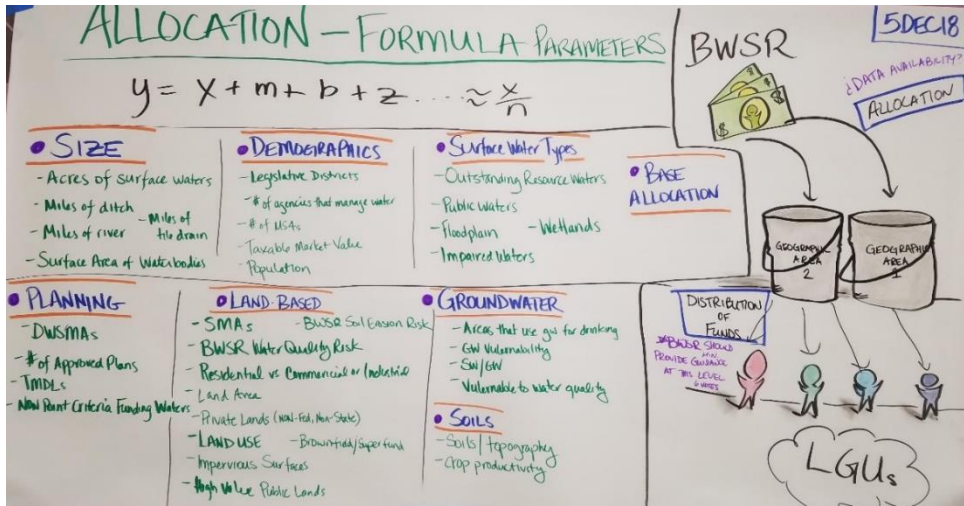 ALLOCATION – FORMULA PARAMETERS
y = x + m + b + z .... ≈ x/n
• SIZE
- Acres of surface waters
- Miles of ditch
- Miles of tile drain
- Miles of river
- Surface Area of Waterbodies
• DEMOGRAPHICS
- Legislative Districts
- # of agencies that manage water
- # of MS4s
- Taxable Market Value
- Population
• Surface Water Types
- Outstanding Resource Waters
- Public Waters
- Floodplain
- Wetlands
- Impaired Waters
• BASE ALLOCATION
• PLANNING
- DWSMAs
- # of Approved Plans
- TMDLs
- Non Point Criteria Funding Waters
• LAND BASED
- SMAs
- BWSR Soil Erosion Risk
- BWSR Water Quality Risk
- Residential vs Commercial or Industrial
- Land Area
- Private Lands (Non-Fed, Non-State)
- LAND USE
- Brownfield/Superfund
- Impervious Surfaces
- High Value Public Lands
• GROUNDWATER
- Areas that use gw for drinking
- GW Vulnerability
- SW/GW
- Vulnerable to water quality
• SOILS
- Soils/topography
- Crop productivity
BWSR
5DEC18
¿DATA AVAILABILITY?
ALLOCATION
$
$
GEOGRAPHIC
AREA
2
GEOGRAPHIC
AREA
1
DISTRIBUTION
OF
FUNDS
BWSR SHOULD
PROVIDE GUIDANCE
AT THIS LEVEL
LGUs